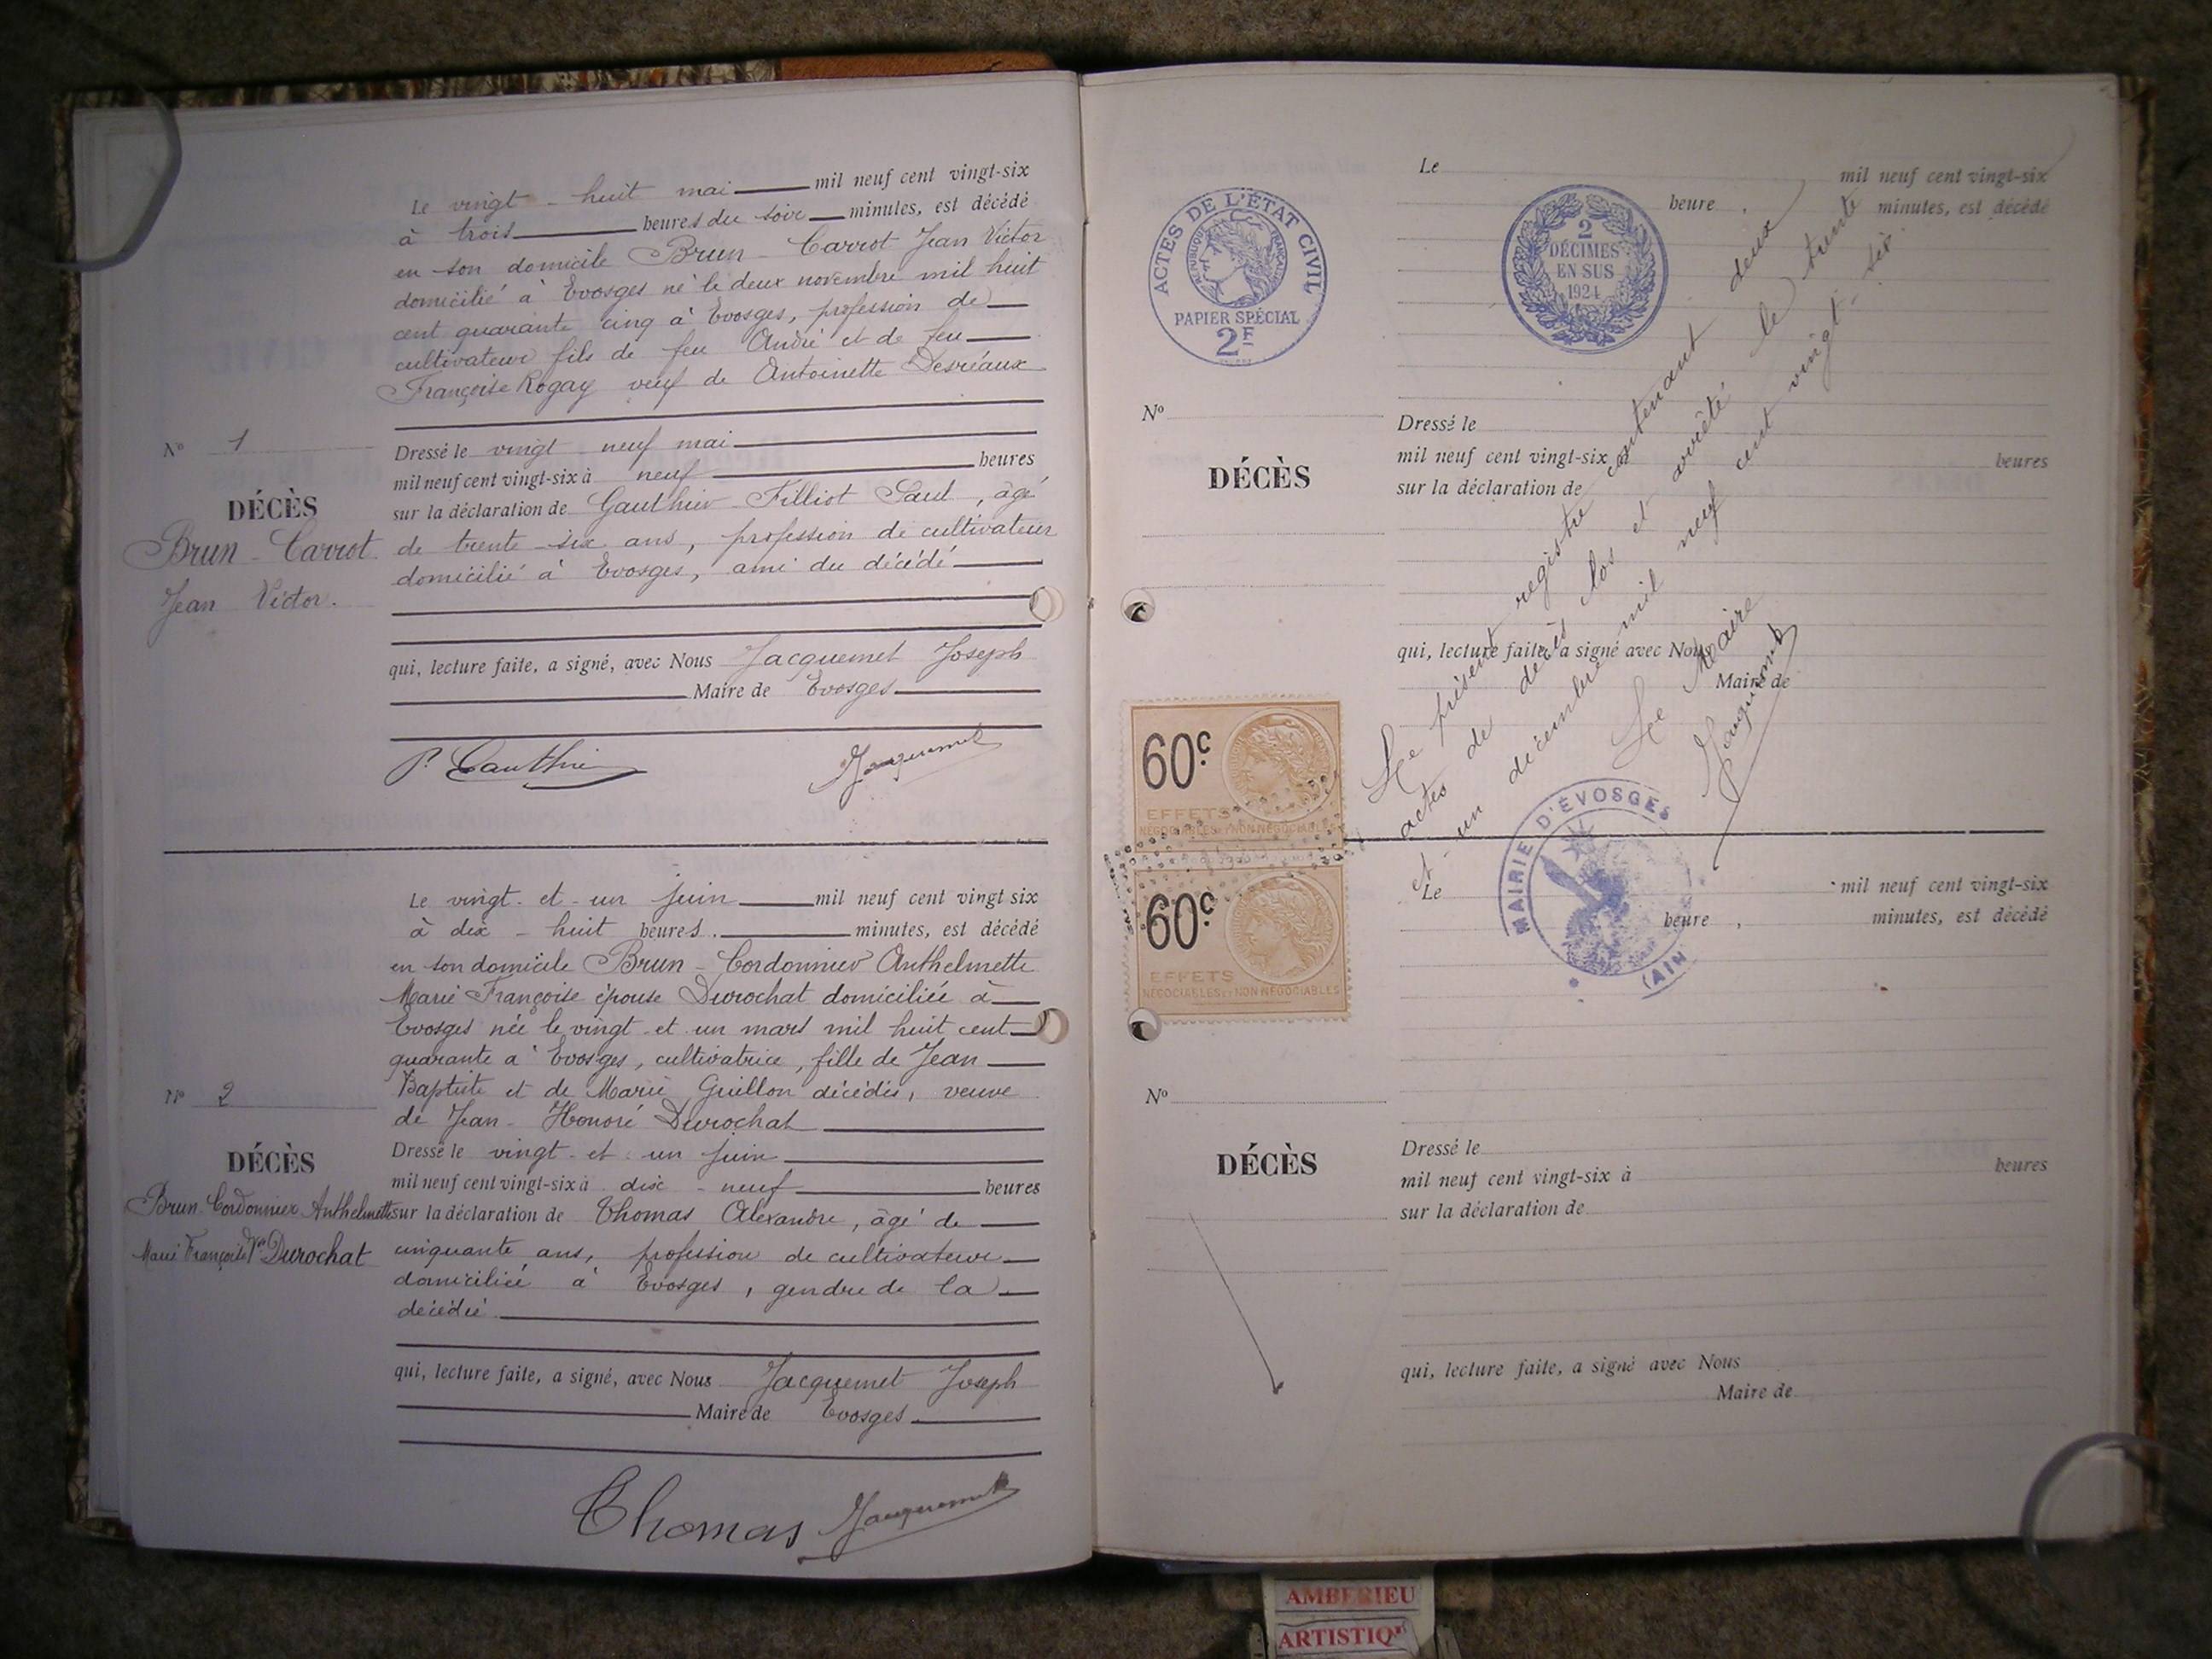 Le vingt - huit mai mil neuf cent vingt-six
à trois heures du soir minutes, est décédé
en son domicile Brun - Carrot Jean Victor
domicilié à Evosges né le deux novembre mil huit
cent quarante cinq à Evosges, profession de
cultivateur fils de feu André et de feu
Françoise Rogay veuf de Antoinette Desréaux
N° 1
DÉCÈS
Brun - Carrot
Jean Victor.
Dressé le vingt neuf mai
mil neuf cent vingt-six à neuf heures
sur la déclaration de Gauthier - Filliot Paul, âgé
de trente - six ans, profession de cultivateur
domicilié à Evosges, ami du décédé
qui, lecture faite, a signé, avec Nous Jacquemet Joseph
Maire de Evosges
P. Gauthier Jacquemet
Le vingt - et - un juin mil neuf cent vingt six
à dix - huit heures. minutes, est décédé
en son domicile Brun - Cordonnier Anthelmette
Marie Françoise épouse Durochat domiciliée à
Evosges née le vingt et un mars mil huit cent
quarante à Evosges, cultivatrice, fille de Jean
Baptiste et de Marie Guillon décédés, veuve
de Jean - Honoré Durochat
N° 2
DÉCÈS
Brun Cordonnier Anthelmette
Marie Françoise Vve Durochat
Dressé le vingt - et - un juin
mil neuf cent vingt-six à dix - neuf heures
sur la déclaration de Thomas Alexandre, âgé de
cinquante ans, profession de cultivateur
domicilié à Evosges, gendre de la
décédée
qui, lecture faite, a signé, avec Nous Jacquemet Joseph
Maire de Evosges
Thomas Jacquemet
ACTES DE L'ÉTAT CIVIL
RÉPUBLIQUE FRANÇAISE
PAPIER SPÉCIAL
2F
2
DÉCIMES
EN SUS
1924
Le mil neuf cent vingt-six
heure , minutes, est décédé
N°
DÉCÈS
Dressé le
mil neuf cent vingt-six à heures
sur la déclaration de
qui, lecture faite, a signé avec Nous
Maire de
Le présent registre contenant deux
actes de décès clos et arrêté le trente
et - un décembre mil neuf cent vingt - six.
Le Maire
Jacquemet
60c
EFFETS
NÉGOCIABLES ET NON NÉGOCIABLES
60c
EFFETS
NÉGOCIABLES ET NON NÉGOCIABLES
MAIRIE D'ÉVOSGES
(AIN
Le mil neuf cent vingt-six
heure , minutes, est décédé
N°
DÉCÈS
Dressé le
mil neuf cent vingt-six à heures
sur la déclaration de
qui, lecture faite, a signé avec Nous
Maire de
AMBERIEU
ARTISTIQ